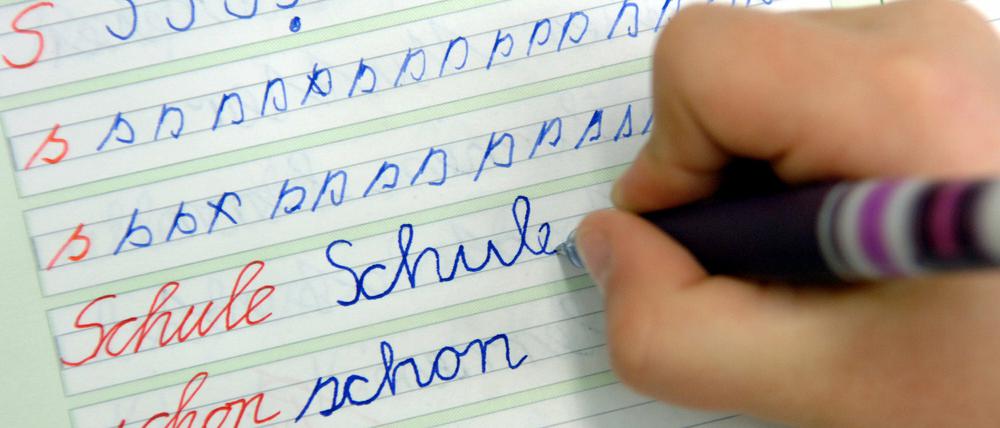 S
s s s s s s s s s s s s s s
s s s s s s s s s s s s s
Schule Schule
schon schon